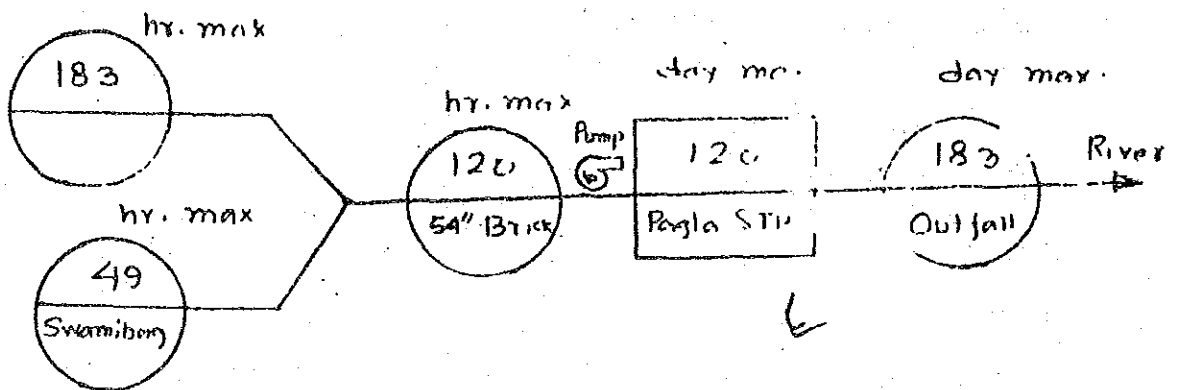 hr. max
183
hr. max
49
Swamibag
hr. max
120
54" Brick
Pump
day ma.
120
Pagla STP
day max.
183
Outfall
River